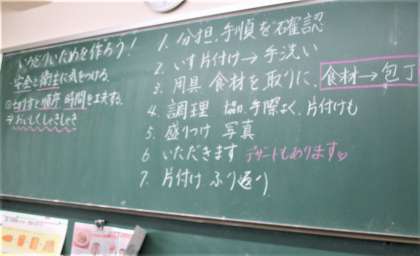 いろどりいためを作ろう！
安全と衛生に気をつける。
切り方と順序 時間を工夫する。
→おいしくしゃきしゃき
1. 分担、手順を確認
2. いす片付け→手洗い
3. 用具 食材を取りに、食材→包丁
4. 調理 協力、手際よく、片付けも
5. 盛りつけ 写真
6. いただきます デザートもあります♡
7. 片付け ふり返り